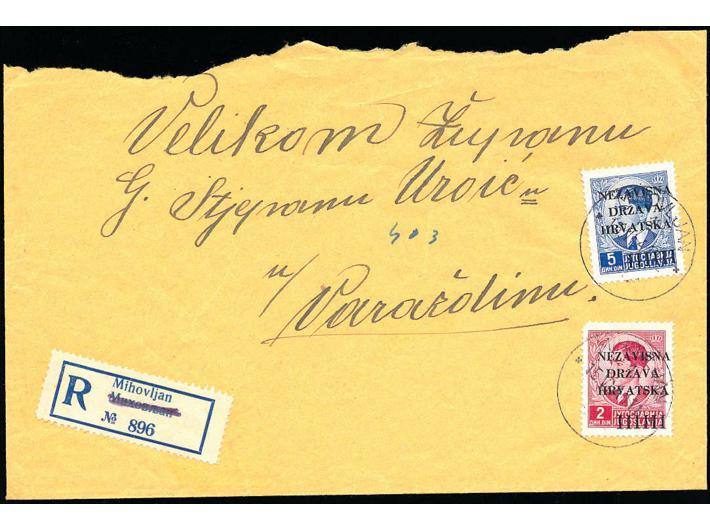 Velikom Županu
G. Stjepanu Uroiću
403
u/
Varaždinu.
NEZAVISNA
DRŽAVA
HRVATSKA
5
ДИН. DIN
ЈУГОСЛАВИЈА
JUGOSLAVIJA
NEZAVISNA
DRŽAVA
HRVATSKA
2
ДИН. DIN
ЈУГОСЛАВИЈА
JUGOSLAVIJA
R
Mihovljan
Миховљан
№ 896